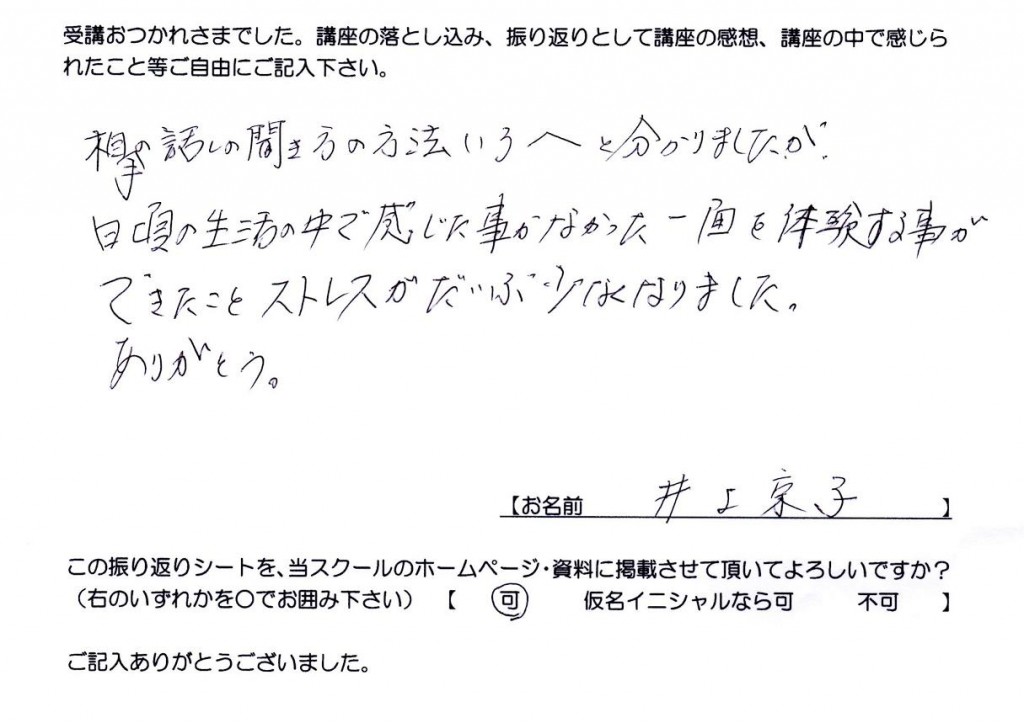 受講おつかれさまでした。講座の落とし込み、振り返りとして講座の感想、講座の中で感じら
れたこと等ご自由にご記入下さい。
相手の話しの聞き方の方法いろへと分かりましたが
日頃の生活の中で感じた事がなかった一面を体験する事が
できたことストレスがだいぶ少なくなりました。
ありがとう。
【お名前 井上京子 】
この振り返りシートを、当スクールのホームページ・資料に掲載させて頂いてよろしいですか？
（右のいずれかを〇でお囲み下さい） 【 可 仮名イニシャルなら可 不可 】
ご記入ありがとうございました。